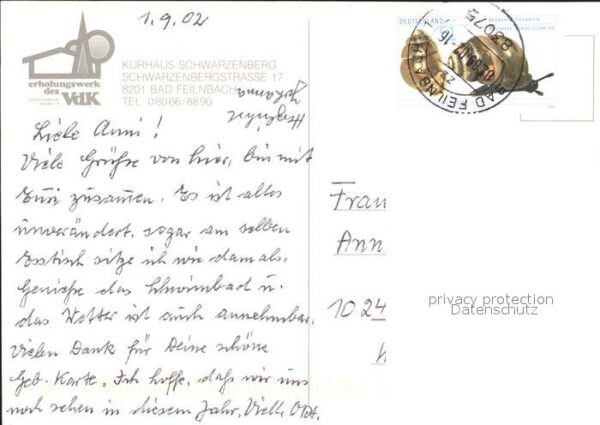 1.9.02
erholungswerk
des
VdK
KURHAUS SCHWARZENBERG
SCHWARZENBERGSTRASSE 17
8201 BAD FEILNBACH
TEL. 08066/8890
Liebe Anni!
Viele Grüße von hier, bin mit
zusammen. Es ist alles
unverändert, sogar am selben
Esstisch sitze ich wie damals,
genieße das Schwimmbad u.
das Wetter ist auch annehmbar.
Vielen Dank für Deine schöne
Geb. Karte. Ich hoffe, daß wir uns
noch sehen in diesem Jahr. Viell. Okt.
Herzlichst
DEUTSCHLAND
83075
BAD FEILNBACH
Frau
Ann
1024
privacy protection
Datenschutz